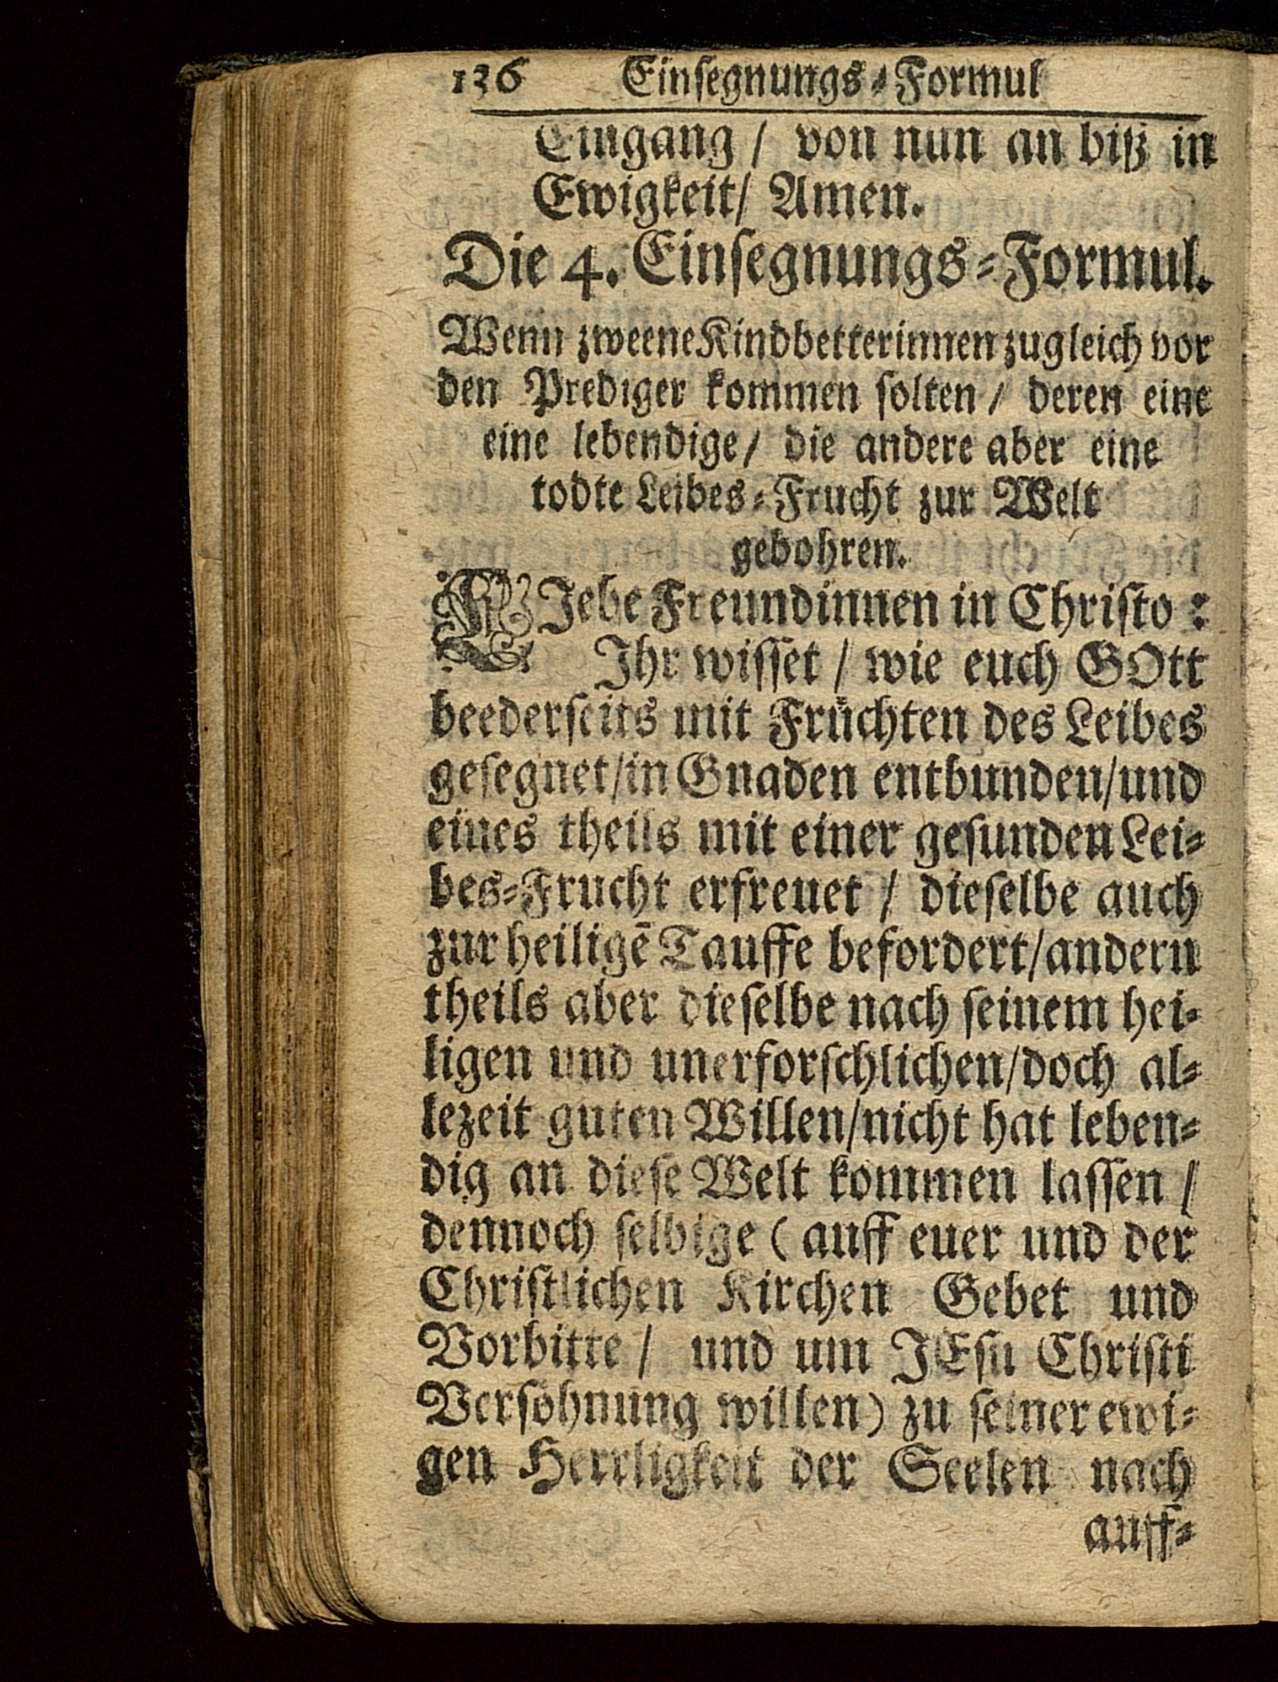 136 Einsegnungs-Formul
Eingang / von nun an biß in
Ewigkeit/ Amen.
Die 4. Einsegnungs-Formul.
Wenn zweene Kindbetterinnen zugleich vor
den Prediger kommen solten / deren eine
eine lebendige / die andere aber eine
todte Leibes-Frucht zur Welt
gebohren.
LIebe Freundinnen in Christo:
Ihr wisset / wie euch GOtt
beederseits mit Früchten des Leibes
gesegnet/in Gnaden entbunden/und
eines theils mit einer gesunden Lei-
bes-Frucht erfreuet / dieselbe auch
zur heiligē Tauffe befordert/andern
theils aber dieselbe nach seinem hei-
ligen und unerforschlichen/doch al-
lezeit guten Willen/nicht hat leben-
dig an diese Welt kommen lassen /
dennoch selbige ( auff euer und der
Christlichen Kirchen Gebet und
Vorbitte / und um JEsu Christi
Versöhnung willen) zu seiner ewi-
gen Herrligkeit der Seelen nach
auff-